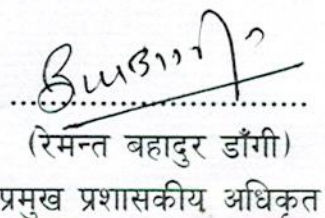 (रेमन्त बहादुर डाँगी)
प्रमुख प्रशासकीय अधिकृत